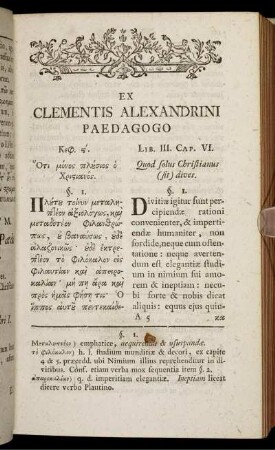 EX
CLEMENTIS ALEXANDRINI
PAEDAGOGO
Κεφ. ϛʹ.
Ὅτι μόνος πλούσιος ὁ
Χριστιανός.
§. 1.
Πλούτου τοίνυν μεταλη-
πτέον ἀξιολόγως, καὶ
μεταδοτέον φιλανθρώ-
πως, οὐ βαναύσως, οὐδὲ
ἀλαζονικῶς· οὐδὲ ἐκτρε-
πτέον τὸ φιλόκαλον εἰς
φιλαυτίαν καὶ ἀπειρο-
καλίαν· μή πη ἄρα καὶ
πρὸς ἡμᾶς φήσῃ τις· Ὁ
ἵππος αὐτοῦ πεντεκαίδε-
LIB. III. CAP. VI.
Quod solus Christianus
(sit) dives.
§. 1.
Divitiae igitur sunt per-
cipiendae rationi
convenienter, & imperti-
endae humaniter, non
sordide, neque cum osten-
tatione: neque averten-
dum est elegantiae studi-
um in nimium sui amo-
rem & ineptiam: necu-
bi forte & nobis dicat
aliquis: equus ejus quin-
A 5
κα
§. 1.
Μεταληπτέον) emphatice, aequirendae & usurpandae.
τὸ φιλόκαλον) h. l. studium munditiae & decori, ex capite
4 & 5. praecedd. ubi Nimium illius reprehenditur in di-
vitibus. Conf. etiam verba mox sequentia item §. 2.
ἀπειροκαλίαν) q. d. imperitiam elegantiae. Ineptiam liceat
dicere verbo Plautino.